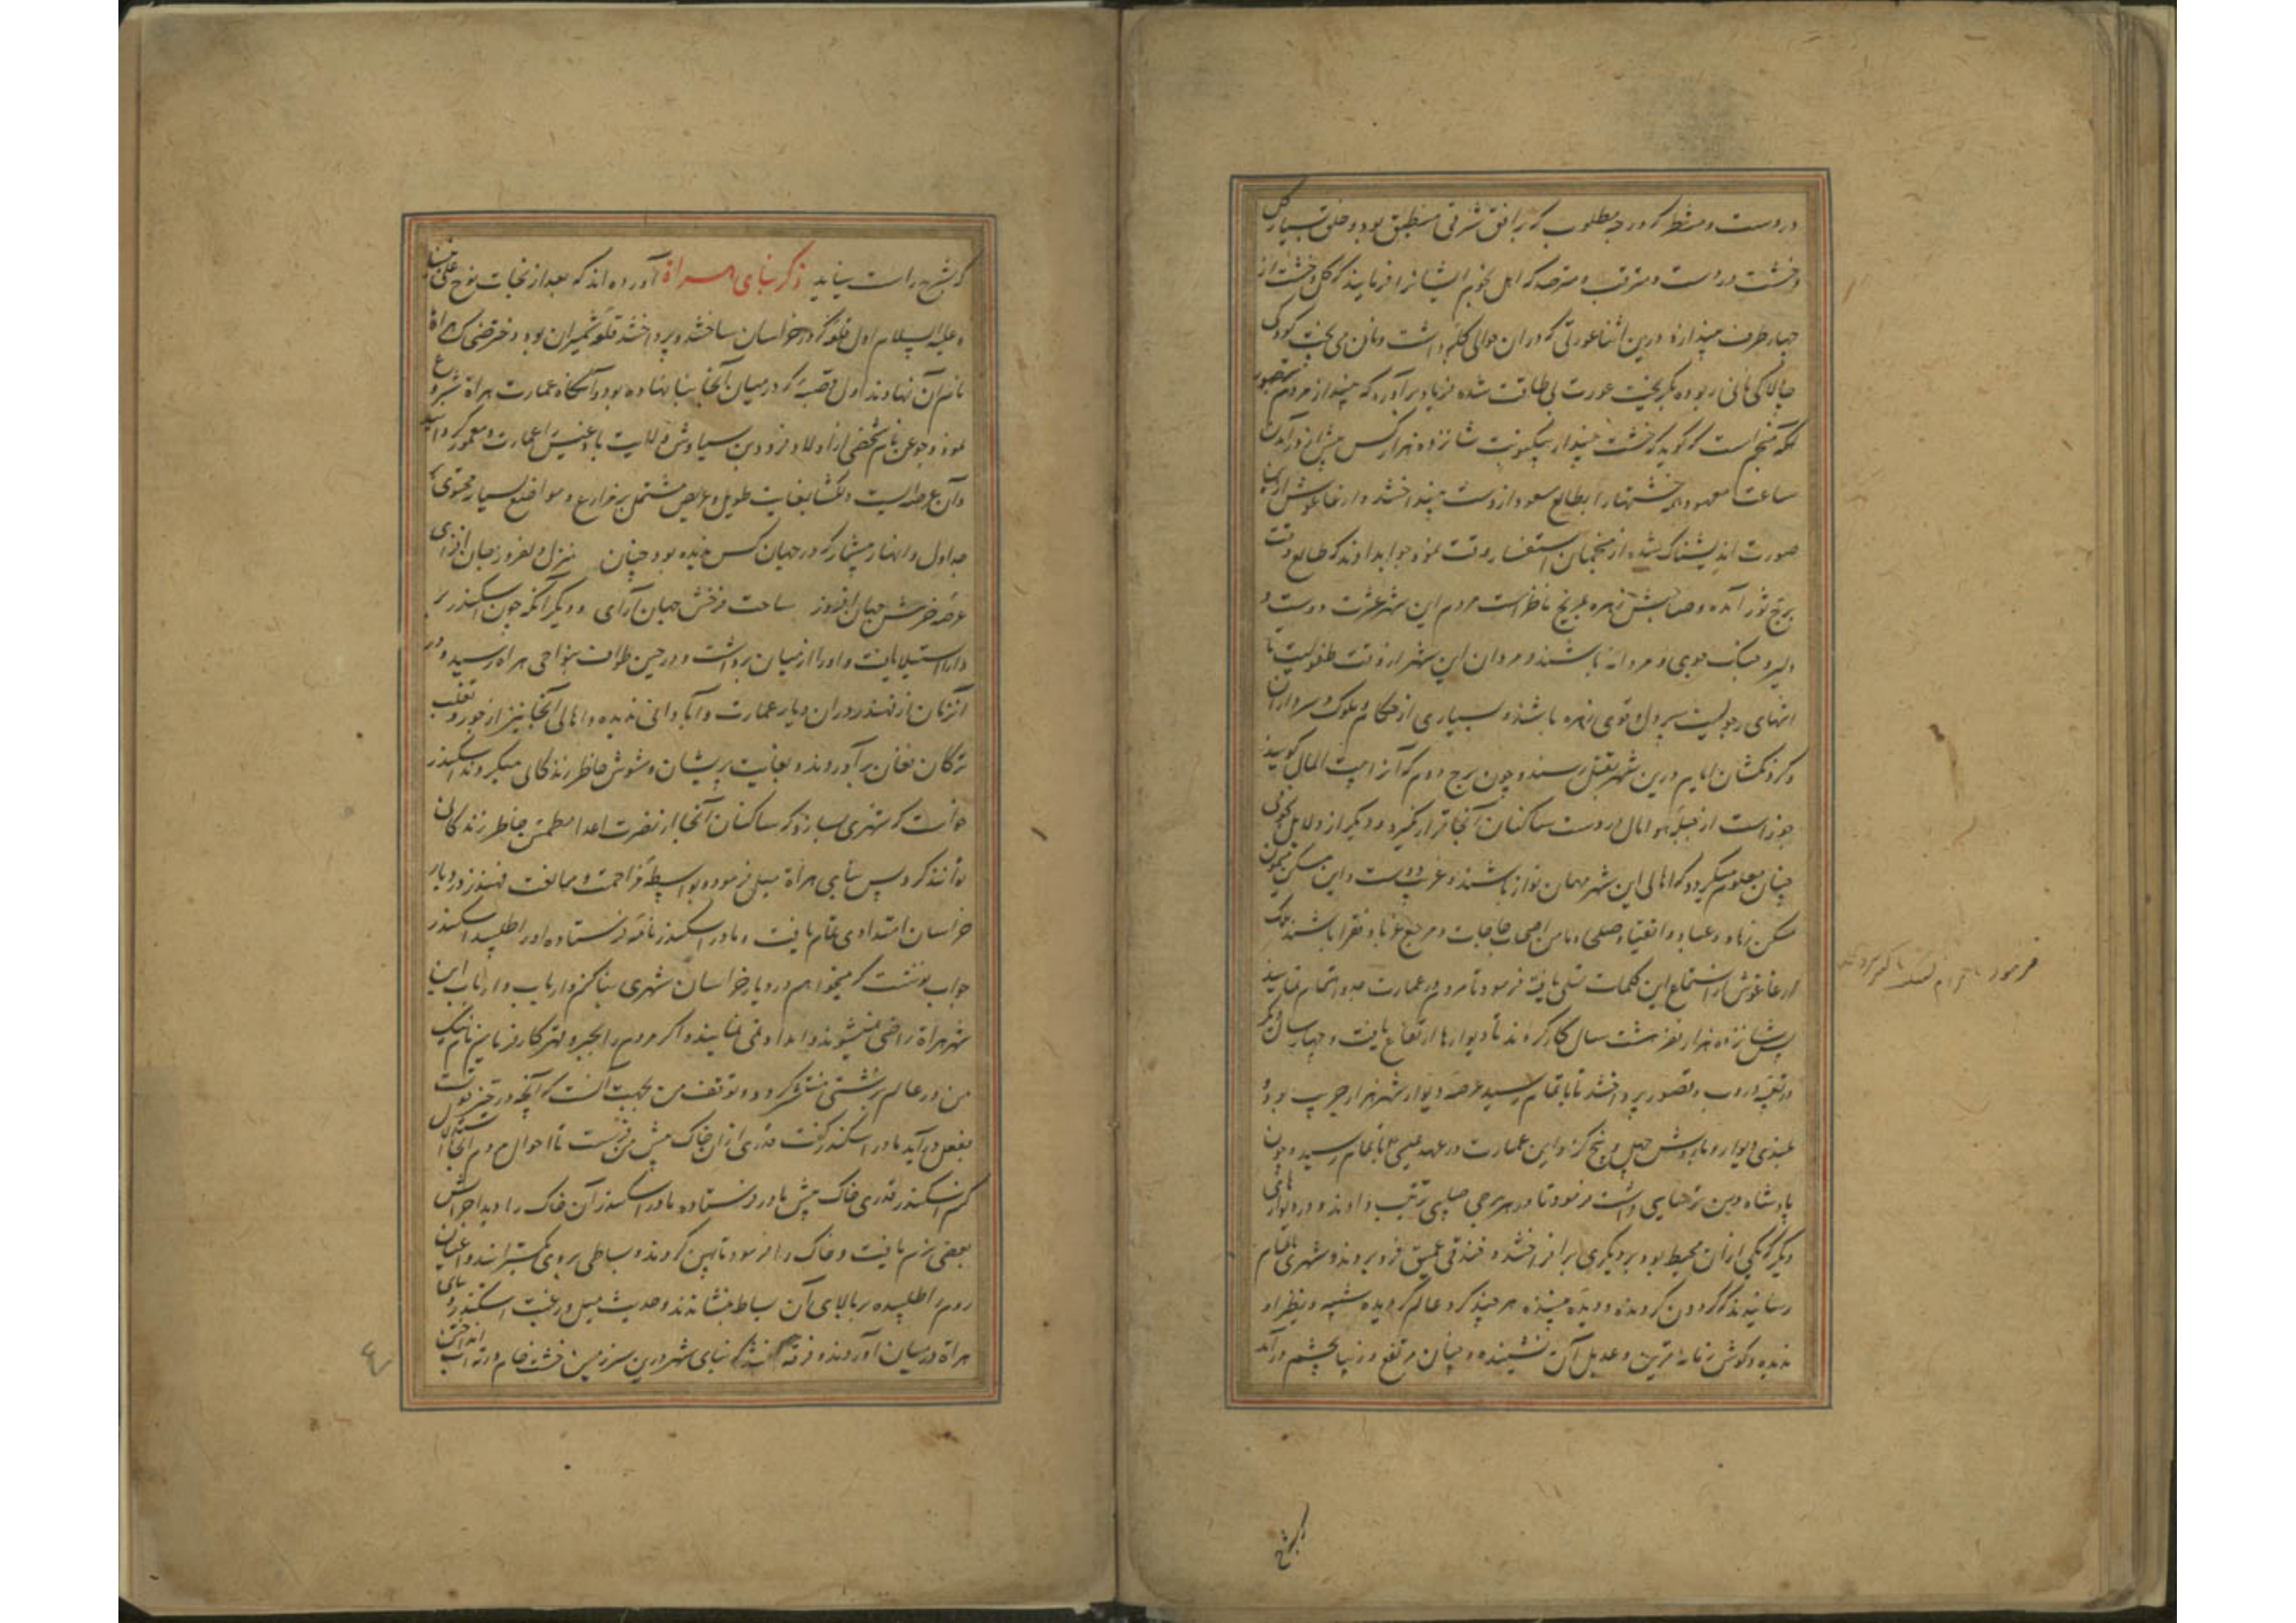 در دست و منتظر که درجه مطلوب که بر افق شرقی منطبق بود و خلق بسیار گل
و خشت در دست و مترقب و مترصد که اهل نجوم ایشانرا فرمایند که گل و خشت از
چهار طرف بیندازند درین اثنا عورتی که در ان حوالی کلبه داشت و نان می پخت کودکی
چالاکی نانی ربوده بگریخت عورت بی طاقت شده فریاد برآورد که بینداز مردم
منجم است که گوید که خشت بینداز بیکنوبت شانزده هزار کس پیش از درآمدن
ساعت معهود همه خشتها را بطالع سعود از دست بینداختند و ارغاغوش ازین
صورت اندیشناک شده از منجمان استفسار وقت نمود جواب دادند که طالع وقت
برج ثور آمده و صاحبش زهره بمریخ ناظر است مردم این شهر عشرت دوست و
دلیر و جنگ جوی و مردانه باشند و مردان این شهر از وقت طفولیت تا
انتهای رجولیت پر دل و قوی زهره باشند و بسیاری از حکام و ملوک و سرداران
و گردنکشان ایام درین شهر بقتل رسند و چون برج دوم که آنرا بیت المال گویند
جوزاست از قبیله هوا مال در دست ساکنان آنجا قرار نگیرد و دیگر از دلایل نجومی
چنان معلوم میگردد که اهالی این شهر مهمان نواز باشند و غریب دوست و این
مسکن زهاد و عباد و اتقیا و صلحا و مامن اصحاب حاجات و مرجع غربا و فقرا باشند ملک
ارغاغوش از استماع این کلمات تسلی یافته فرمود تا مردم در عمارت جد و اهتمام نمایند
پس شانزده هزار نفر هشت سال کار کردند تا دیوارها ارتفاع یافت و چهار سال دیگر
در تعبیه دروب و قصور پرداختند تا باتمام رسید عرصه دیوار شهر هزار جریب بود و
بلندی دیوار و باروش چهل و پنج گز و این عمارت در عهد عیسی ع باتمام رسید و چون
پادشاه دین ترسایی داشت فرمود تا در هر برجی صلیبی ترتیب دادند و دیوارهای
دیگر که یکی از آن محیط بود بر دیگری برافراختند و خندقی عمیق فرو بردند و شهری باتمام
رسانیدند که گردون گردنده و دیده بیننده هر چند گرد عالم گردیده شبیه و نظیر او
ندیده و گوش زمانه قرین و عدیل آن نشنیده و چنان مرتفع و زیبا بچشم درآمد
که شرح
فرمود
که شرح راست نیاید ذکر بنای هراة آورده اند که بعد از نجات نوح علی نبینا
و علیه السلام اول قلعه که در خراسان ساختند و پرداختند قلعه شمیران بود و
نام آن نهادند اول قصبه که در میان آنجا بنا نهاده بود و آنگاه عمارت هراة شروع
نمود و جوعن نام شخصی از اولاد فرود بن سیاوش ولایت بادغیس را عمارت و معمور کرد
و آن عرصه ایست دلگشا بغایت طویل و عریض مشتمل بر مزارع و مواضع بسیار محتوی بر
جداول و انهار بیشمار که در جهان کس ندیده بود چنان منزل دلفروز جان افزای
عرصه خرمش جهان افروز ساحت فرخش جهان آرای و دیگر آنکه چون اسکندر بر
دارا استیلا یافت و او را از میان برداشت و در حین طواف بنواحی هراه رسید و در
آنزمان از قهندز در ان دیار عمارت و آبادانی ندیده و اهالی آنجا نیز از جور و تغلب
ترکان فغان برآوردند و بغایت پریشان و مشوش خاطر زندگانی میکردند اسکندر
خواست که شهری بسازد که ساکنان آنجا از نضرت اعدا مطمئن خاطر زندگانی
توانند کرد پس ببنای هراة میل فرمود و بواسطه مزاحمت و ممانعت قهندز در دیار
خراسان امتدادی تمام یافت و مادر اسکندر نامه فرستاده او را طلبید اسکندر
جواب نوشت که میخواهم در دیار خراسان شهری بنا کنم و ارباب این
شهر هراة راضی نمیشوند و امداد نمی نمایند و اگر مردم را بجبر و قهر کار فرمایم نام نیک
من در عالم بزشتی منتشر گردد و توقف من بجهت آنست که آنچه در حیز قوتست
بفعل درآید مادر اسکندر گفت قدری از ان خاک پیش من فرست تا احوال مردم آنجا استدلال
کنم اسکندر قدری خاک پیش مادر فرستاده مادر اسکندر آن خاک را دید اجزایش
بعضی نرم یافت و خاک را فرمود تا پهن کردند و بساطی بر روی گسترانند و اعیان
روم را طلبیده بر بالای آن بساط بنشاندند و حدیث میل و رغبت اسکندر و بنای
هراة در میان آوردند و فرقه گفتند که بنای شهر درین سرزمین خشت خام در آب انداختن